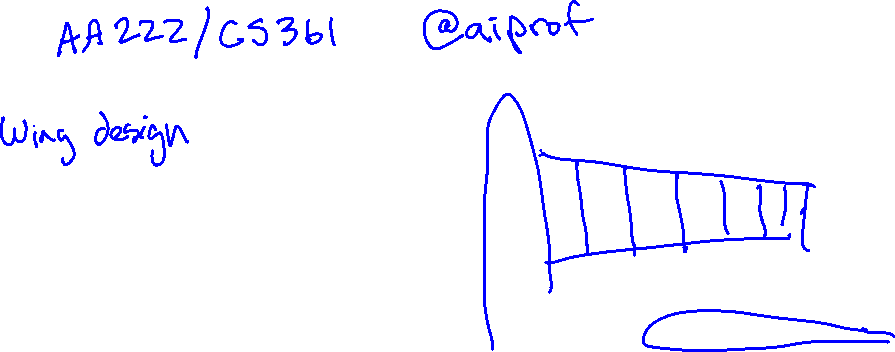 AA222/CS361 @aiprof
Wing design